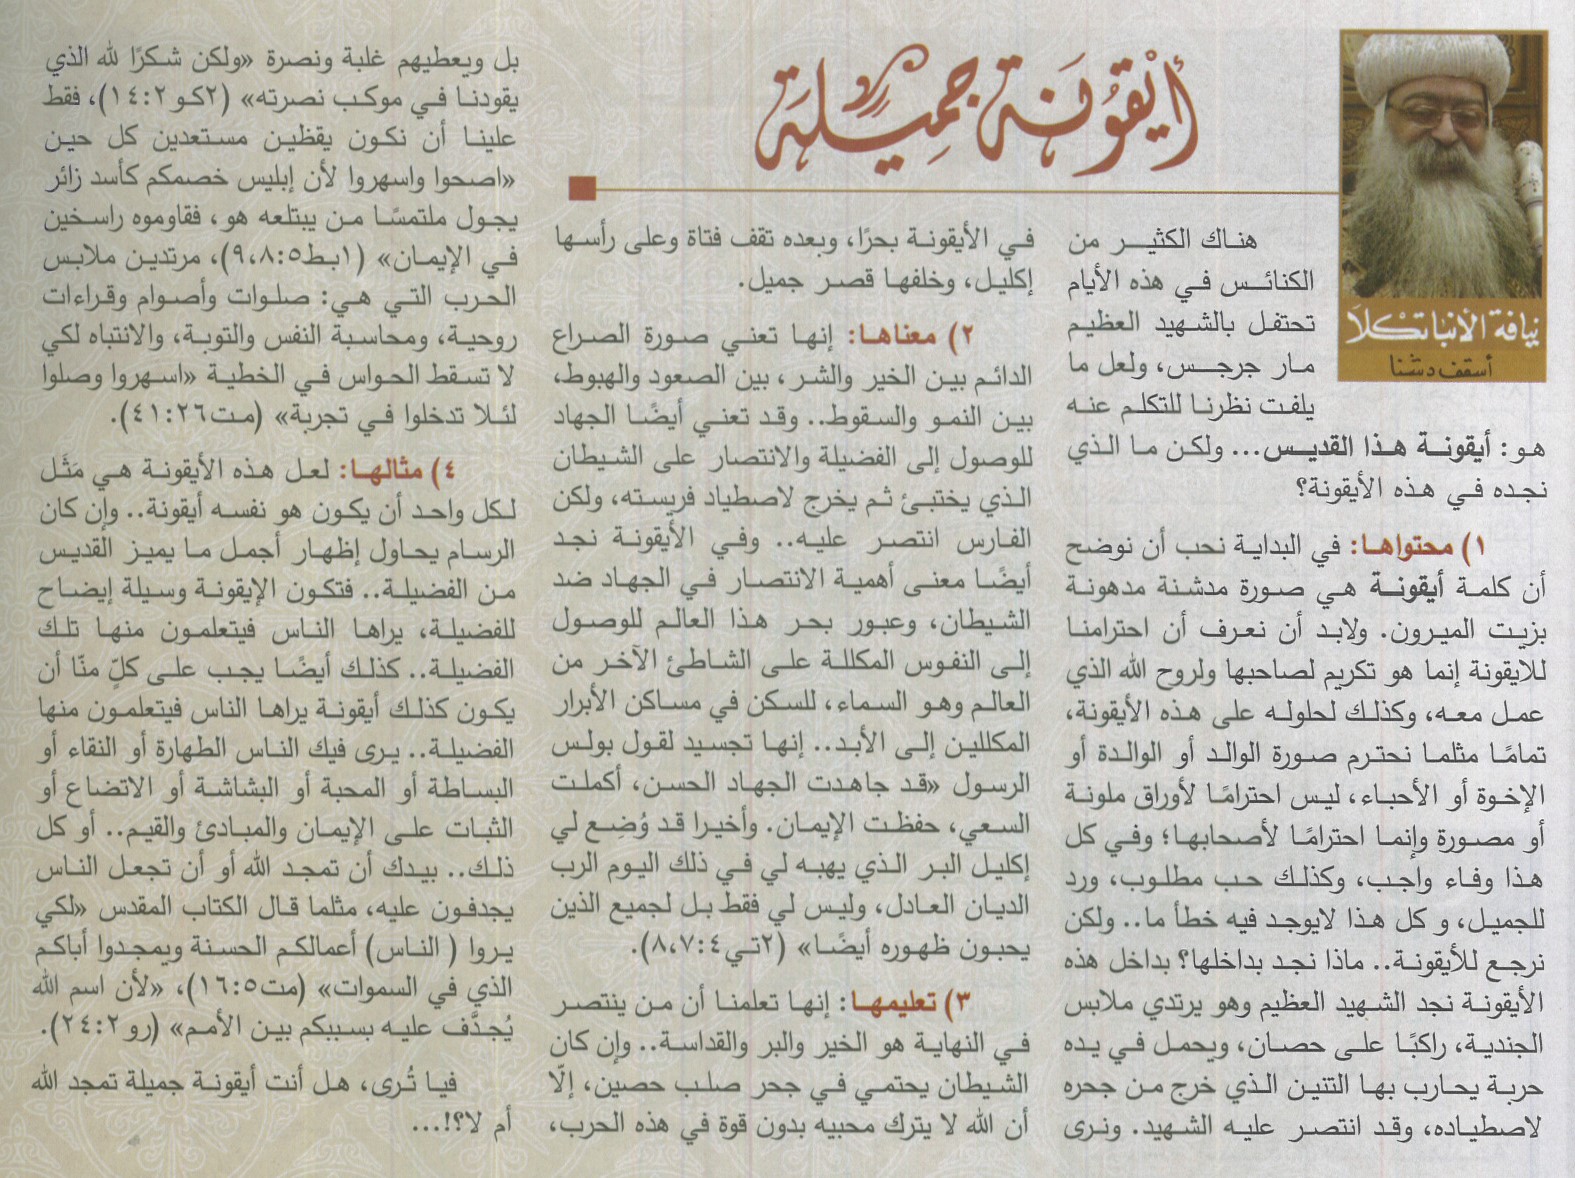 أيقونة جميلة
نيافة الأنبا تكلا
أسقف دشنا
هناك الكثير من
الكنائس في هذه الأيام
تحتفل بالشهيد العظيم
مار جرجس، ولعل ما
يلفت نظرنا للتكلم عنه
هو: أيقونة هذا القديس... ولكن ما الذي
نجده في هذه الأيقونة؟
١) محتواها: في البداية نحب أن نوضح
أن كلمة أيقونة هي صورة مدشنة مدهونة
بزيت الميرون. ولابد أن نعرف أن احترامنا
للايقونة إنما هو تكريم لصاحبها ولروح الله الذي
عمل معه، وكذلك لحلوله على هذه الأيقونة،
تمامًا مثلما نحترم صورة الوالد أو الوالدة أو
الإخوة أو الأحباء، ليس احترامًا لأوراق ملونة
أو مصورة وإنما احترامًا لأصحابها؛ وفي كل
هذا وفاء واجب، وكذلك حب مطلوب، ورد
للجميل، و كل هذا لايوجد فيه خطأ ما.. ولكن
نرجع للأيقونة.. ماذا نجد بداخلها؟ بداخل هذه
الأيقونة نجد الشهيد العظيم وهو يرتدي ملابس
الجندية، راكبًا على حصان، ويحمل في يده
حربة يحارب بها التنين الذي خرج من جحره
لاصطياده، وقد انتصر عليه الشهيد. ونرى
في الأيقونة بحرًا، وبعده تقف فتاة وعلى رأسها
إكليل، وخلفها قصر جميل.
٢) معناها: إنها تعني صورة الصراع
الدائم بين الخير والشر، بين الصعود والهبوط،
بين النمو والسقوط.. وقد تعني أيضًا الجهاد
للوصول إلى الفضيلة والانتصار على الشيطان
الذي يختبئ ثم يخرج لاصطياد فريسته، ولكن
الفارس انتصر عليه.. وفي الأيقونة نجد
أيضًا معنى أهمية الانتصار في الجهاد ضد
الشيطان، وعبور بحر هذا العالم للوصول
إلى النفوس المكللة على الشاطئ الآخر من
العالم وهو السماء، للسكن في مساكن الأبرار
المكللين إلى الأبد.. إنها تجسيد لقول بولس
الرسول «قد جاهدت الجهاد الحسن، أكملت
السعي، حفظت الإيمان. وأخيرا قد وُضع لي
إكليل البر الذي يهبه لي في ذلك اليوم الرب
الديان العادل، وليس لي فقط بل لجميع الذين
يحبون ظهوره أيضًا» (٢تي٤:٨،٧).
٣) تعليمها: إنها تعلمنا أن من ينتصر
في النهاية هو الخير والبر والقداسة.. وإن كان
الشيطان يحتمي في جحر صلب حصين، إلّا
أن الله لا يترك محبيه بدون قوة في هذه الحرب،
بل ويعطيهم غلبة ونصرة «ولكن شكرًا لله الذي
يقودنا في موكب نصرته» (٢كو٢:١٤)، فقط
علينا أن نكون يقظين مستعدين كل حين
«اصحوا واسهروا لأن إبليس خصمكم كأسد زائر
يجول ملتمسًا من يبتلعه هو، فقاوموه راسخين
في الإيمان» (١بط٥:٩،٨)، مرتدين ملابس
الحرب التي هي: صلوات وأصوام وقراءات
روحية، ومحاسبة النفس والتوبة، والانتباه لكي
لا تسقط الحواس في الخطية «اسهروا وصلوا
لئلا تدخلوا في تجربة» (مت٢٦:٤١).
٤) مثالها: لعل هذه الأيقونة هي مَثَل
لكل واحد أن يكون هو نفسه أيقونة.. وإن كان
الرسام يحاول إظهار أجمل ما يميز القديس
من الفضيلة.. فتكون الإيقونة وسيلة إيضاح
للفضيلة، يراها الناس فيتعلمون منها تلك
الفضيلة.. كذلك أيضًا يجب على كلٍ منّا أن
يكون كذلك أيقونة يراها الناس فيتعلمون منها
الفضيلة.. يرى فيك الناس الطهارة أو النقاء أو
البساطة أو المحبة أو البشاشة أو الاتضاع أو
الثبات على الإيمان والمبادئ والقيم.. أو كل
ذلك.. بيدك أن تمجد الله أو أن تجعل الناس
يجدفون عليه، مثلما قال الكتاب المقدس «لكي
يروا ( الناس) أعمالكم الحسنة ويمجدوا أباكم
الذي في السموات» (مت٥:١٦)، «لأن اسم الله
يُجدَّف عليه بسببكم بين الأمم» (رو ٢:٢٤).
فيا تُرى، هل أنت أيقونة جميلة تمجد الله
أم لا؟!...